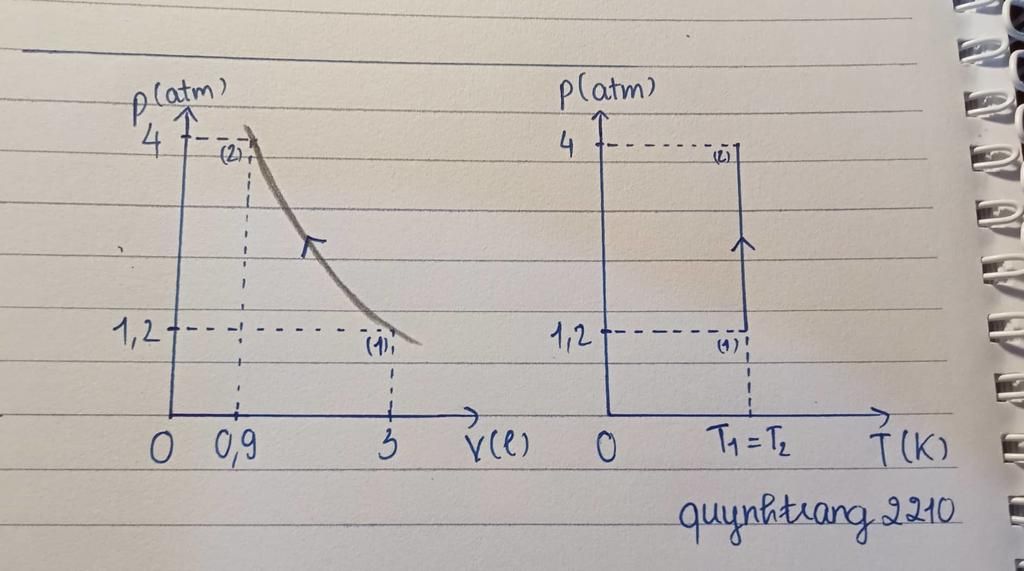 p(atm)
4
(2)
1,2
(1)
0
0,9
3
V(l)
p(atm)
4
(2)
1,2
(1)
0
T₁ = T₂
T(K)
quynhtrang 2210